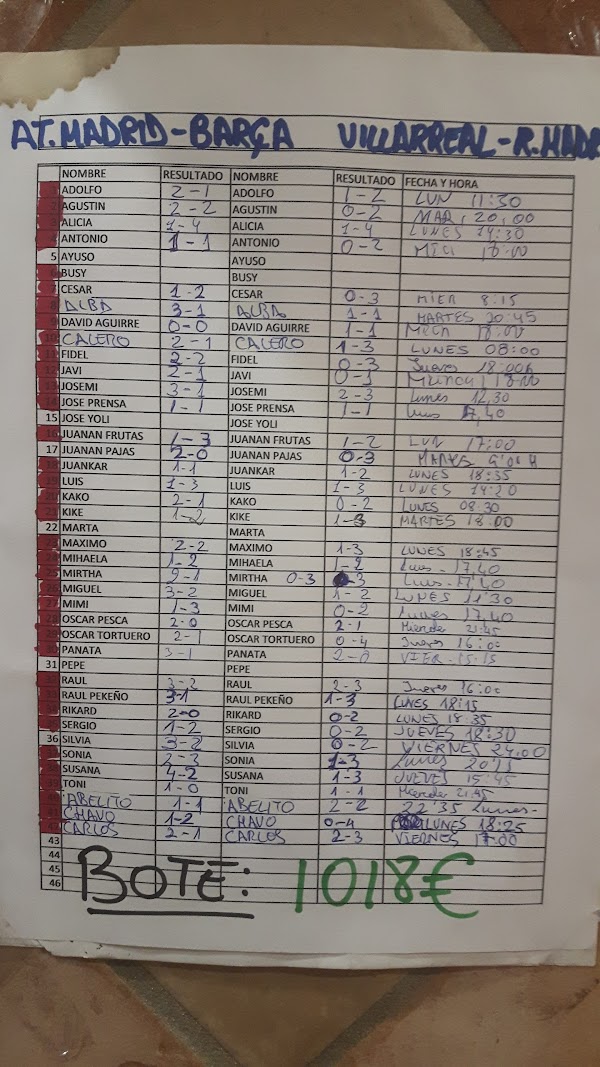 AT. MADRID - BARÇA VILLARREAL - R. MADR
NOMBRE RESULTADO NOMBRE RESULTADO FECHA Y HORA
ADOLFO 2-1 ADOLFO 1-2 LUN 11:30
AGUSTIN 2-2 AGUSTIN 0-2 MAR, 20,00
ALICIA 1-4 ALICIA 1-4 LUNES 14:30
ANTONIO 1-1 ANTONIO 0-2
5 AYUSO AYUSO
6 BUSY BUSY
7 CESAR 1-2 CESAR 0-3 MIER 8:15
8 ALBA 3-1 ALBA 1-1 MARTES 20:45
9 DAVID AGUIRRE 0-0 DAVID AGUIRRE 1-1 18:00
10 CALERO 2-1 CALERO 1-3 LUNES 08:00
11 FIDEL 2-2 FIDEL 0-3 Jueves 18:00h
12 JAVI 2-1 JAVI 0-1 18:00
13 JOSEMI 3-1 JOSEMI 2-3 Lunes 12,30
14 JOSE PRENSA 1-1 JOSE PRENSA 1-1
15 JOSE YOLI JOSE YOLI
16 JUANAN FRUTAS 1-3 JUANAN FRUTAS 1-2 LUN 17:00
17 JUANAN PAJAS 2-0 JUANAN PAJAS 0-3
18 JUANKAR 1-1 JUANKAR 1-2 LUNES 18:35
19 LUIS 1-3 LUIS 1-3 LUNES 14:20
20 KAKO 2-1 KAKO 0-2 LUNES 08:30
21 KIKE 1-2 KIKE 1-3 MARTES 18:00
22 MARTA MARTA
23 MAXIMO 2-2 MAXIMO 1-3 LUNES 18:45
24 MIHAELA 1-2 MIHAELA 1-2 17,40
25 MIRTHA 2-1 MIRTHA 0-3 3 17,40
26 MIGUEL 3-2 MIGUEL 1-2 LUNES 11:30
27 MIMI 1-3 MIMI 0-2 Lunes 17,40
28 OSCAR PESCA 2-0 OSCAR PESCA 2-1 21:45
29 OSCAR TORTUERO 2-1 OSCAR TORTUERO 0-4 Jueves 16:00
30 PANATA 3-1 PANATA 2-0 VIER-15:15
31 PEPE PEPE
32 RAUL 3-2 RAUL 2-3 Jueves 16:00
33 RAUL PEKEÑO 3-1 RAUL PEKEÑO 1-3 LUNES 18:15
34 RIKARD 2-0 RIKARD 0-2 LUNES 18:35
35 SERGIO 1-2 SERGIO 0-2 JUEVES 18:30
36 SILVIA 3-2 SILVIA 0-2 VIERNES 24:00
37 SONIA 2-3 SONIA 1-3 Lunes 20'15
38 SUSANA 4-2 SUSANA 1-3 JUEVES 15:45
39 TONI 1-0 TONI 1-1 21:45
40 ABELITO 1-1 ABELITO 2-2 22'35 Lunes-
41 CHAVO 1-2 CHAVO 0-4 LUNES 18:25
42 CARLOS 2-1 CARLOS 2-3 VIERNES 17:00
43
44
45
46
BOTE: 1018€